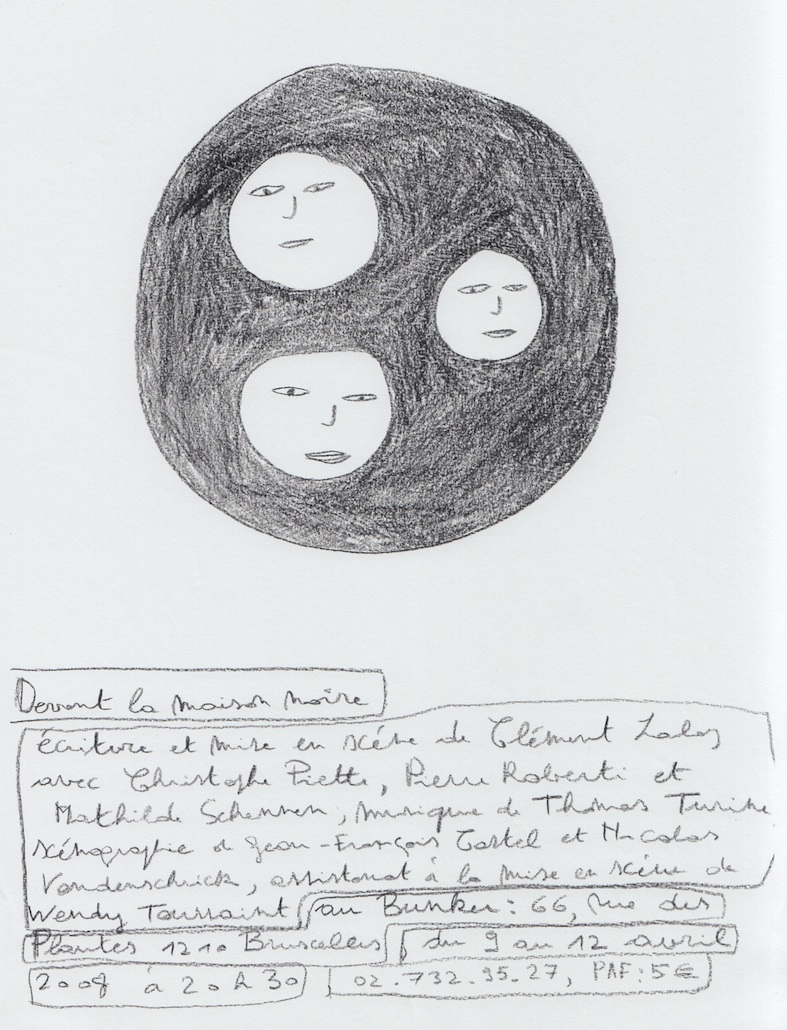 Devant la maison noire
écriture et mise en scène de Clément Laloy
avec Christophe Piette, Pierre Roberti et
Mathilde Schennen, musique de Thomas Turine
scénographie de Jean-François Castel et Nicolas
Vandenschrick, assistanat à la mise en scène de
Wendy Toussaint au Bunker: 66, rue des
Plantes 1210 Bruxelles du 9 au 12 avril
2008 à 20h30 02.732.95.27, PAF: 5€